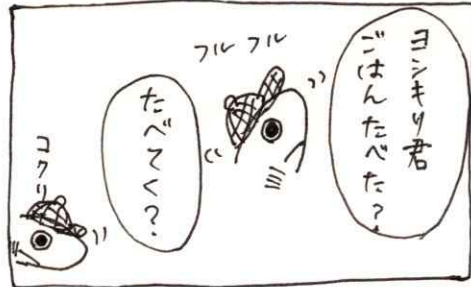 ヨシキリ君
ごはんたべた?
フルフル
たべてく?
コクリ